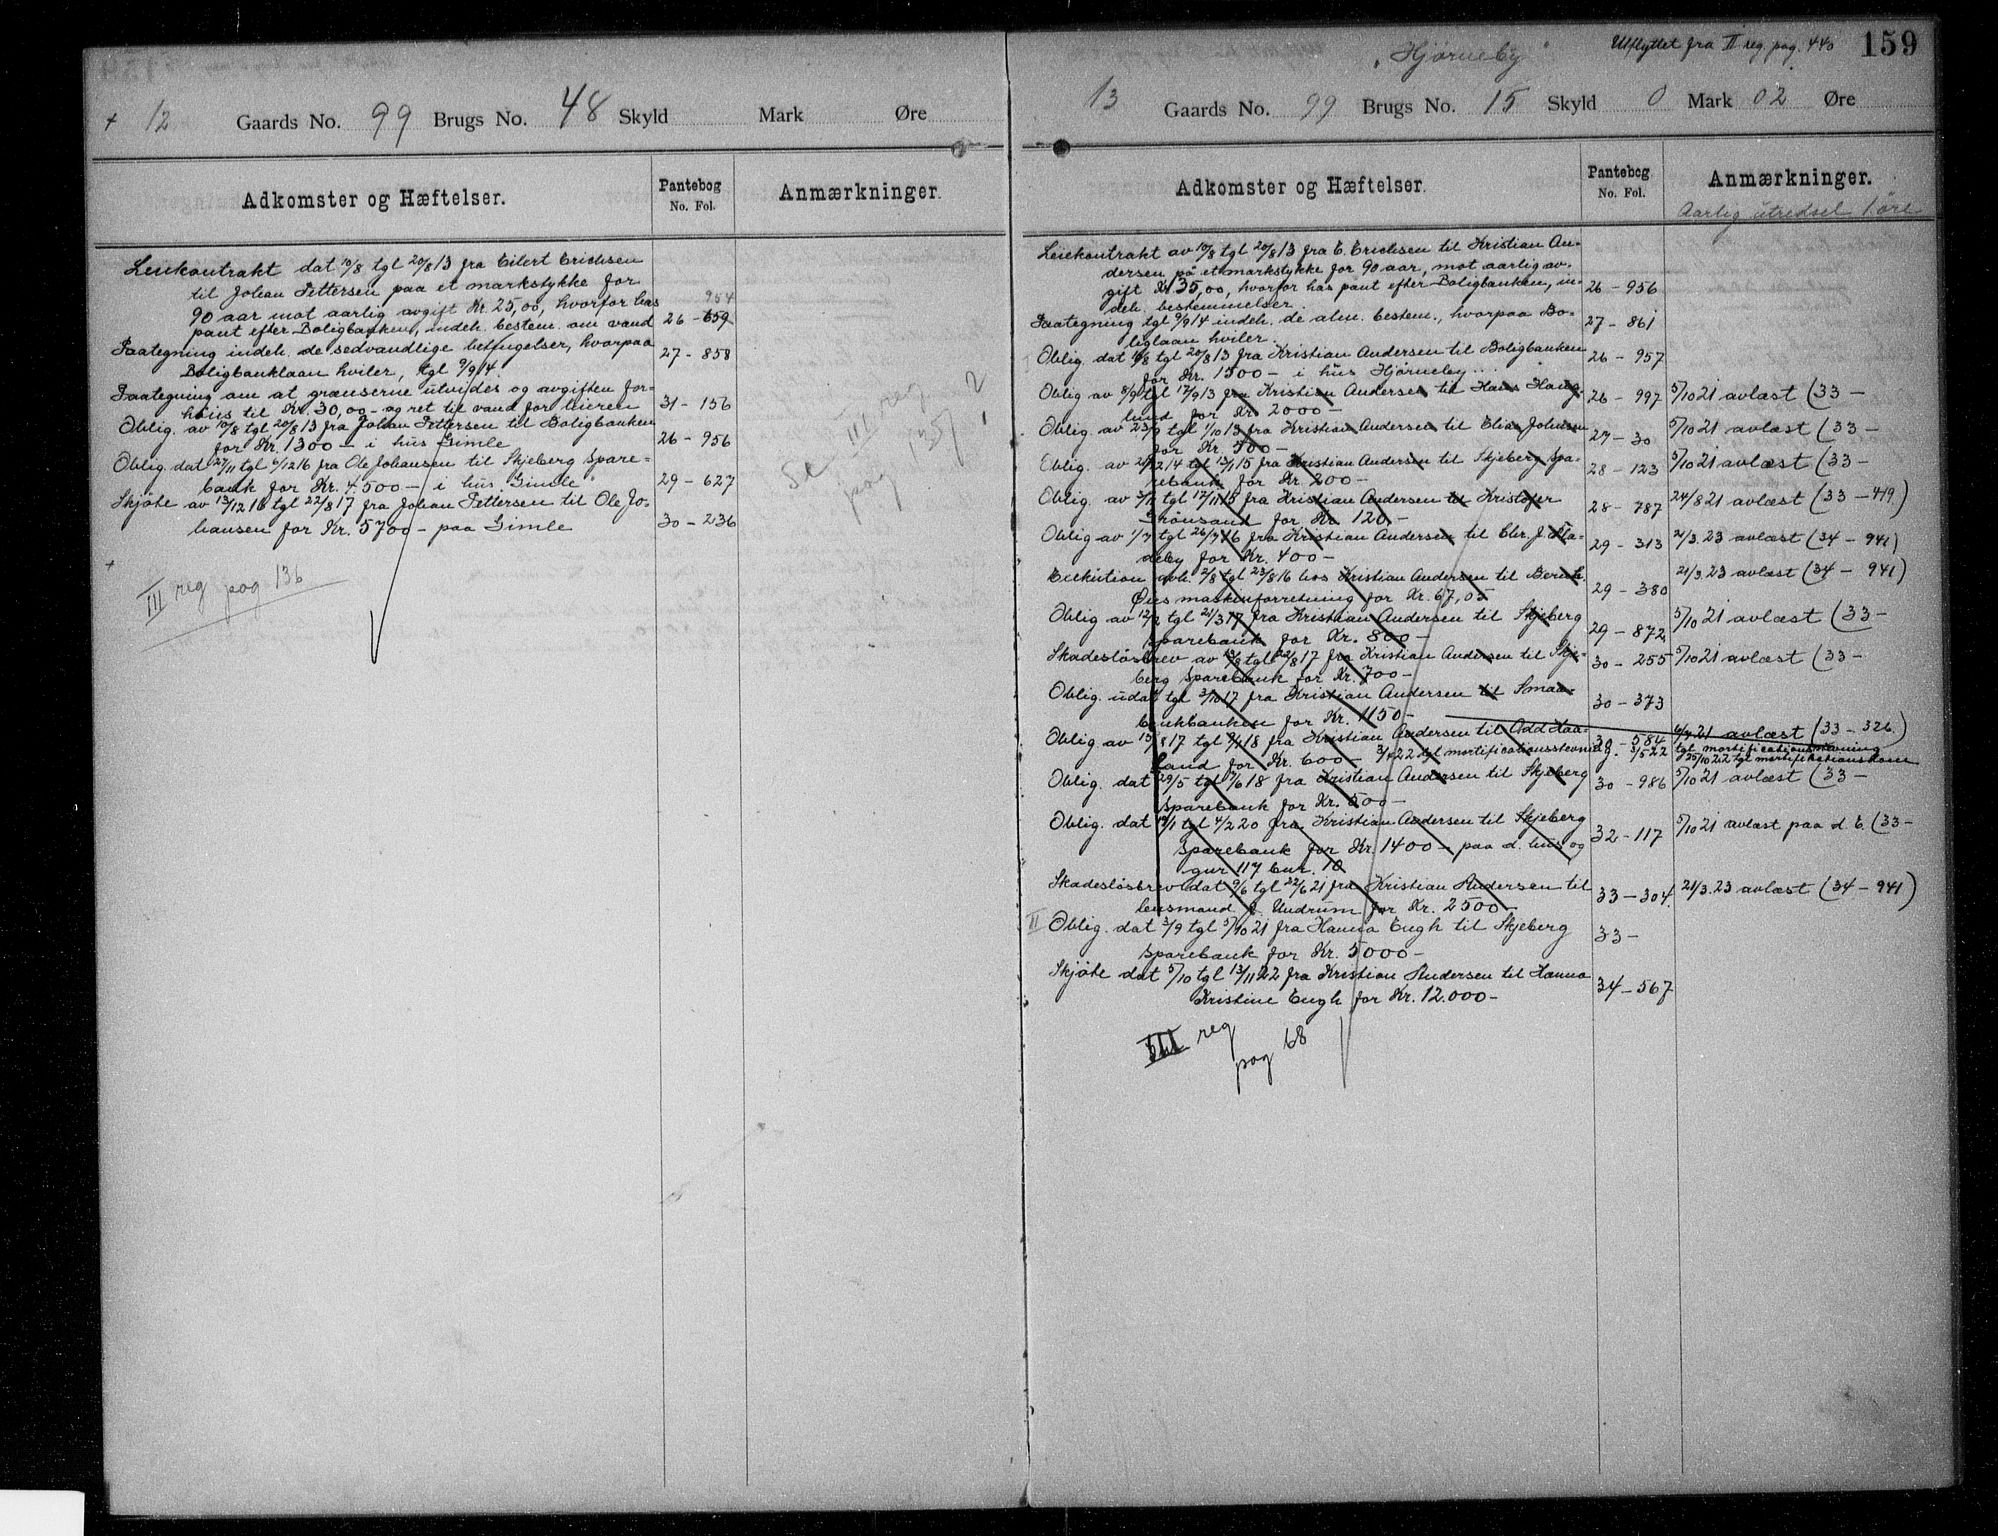 + 12 Gaards No. 99 Brugs No. 48 Skyld Mark Øre
Adkomster og Hæftelser. Pantebog No. Fol. Anmærkninger.
Leiekontrakt dat 10/8 tgl 20/8 13 fra Eilert Erichsen
til Johan Pettersen paa et markstykke for
90 aar mot aarlig avgift Kr. 25,00, hvorfor has 954
pant efter Boligbanken, indeh. bestem. om vand 26 - 659
Paategning indeh. de sedvandlige betingelser, hvorpaa 27 - 858
Boligbanklaan hviler, tgl 9/9 14.
Paategning om at grænserne utvides og avgiften for-
høies til Kr. 30,00 - og ret til vand for leieren 31 - 156
Oblig. av 10/8 tgl 20/8 13 fra Johan Pettersen til Boligbanken
for Kr. 1300 - i hus Gimle 26 - 956
Oblig. dat 27/11 tgl 6/12 16 fra Ole Johansen til Skjeberg Spare-
bank for Kr. 4500 - i hus "Gimle" 29 - 627
Skjöte av 13/12 16 tgl 22/8 17 fra Johan Pettersen til Ole Jo-
hansen for Kr. 5700 - paa Gimle 30 - 236
+
III reg pag 136
Se III reg
pag 51 ?
"Hjørneby" Utflyttet fra II reg. pag. 440 159
13 Gaards No. 99 Brugs No. 15 Skyld 0 Mark 02 Øre
Adkomster og Hæftelser. Pantebog No. Fol. Anmærkninger.
Aarlig utredsel 1 øre
Leiekontrakt av 10/8 tgl 20/8 13 fra E. Erichsen til Kristian An-
dersen på et markstykke for 90 aar, mot aarlig av-
gift Kr 35,00, hvorfor has pant efter Boligbanken, in- 26 - 956
deh. bestemmelser.
Paategning tgl 9/9 14 indeh. de alm. bestem., hvorpaa Bo- 27 - 861
liglaan hviler.
Oblig. dat 10/8 tgl 20/8 13 fra Kristian Andersen til Boligbanken 26 - 957
for Kr. 1500 - i hus Hjørneby...
Oblig av 8/9 tgl 17/9 13 fra Kristian Andersen til Hans Haug- 26 - 997 5/10 21 avlæst (33 -
lund for Kr 2000 -
Oblig. av 23/9 tgl 1/10 13 fra Kristian Andersen til Elias Johnsen 27 - 30 5/10 21 avlæst (33 -
for Kr 500 -
Oblig. av 21/12 14 tgl 13/1 15 fra Kristian Andersen til Skjeberg Spa- 28 - 123 5/10 21 avlæst (33 -
rebank for Kr. 200 -
Oblig. av tgl 17/11 15 fra Kristian Andersen til Kristofer 28 - 787 24/8 21 avlæst (33 - 419)
Grönsand for Kr 120 -
Oblig av 1/7 tgl 26/7 16 fra Kristian Andersen til Chr. J. Fla- 29 - 313 21/3. 23 avlæst (34 - 941)
deby for Kr. 400 -
Exekution avh. 2/8 tgl 23/8 16 hos Kristian Andersen til Bernh. 29 - 380 21/3. 23 avlæst (34 - 941)
Øus maskinforretning for Kr. 67,05
Oblig av 12/2 tgl 21/3 17 fra Kristian Andersen til Skjeberg 29 - 872 5/10 21 avlæst (33 -
Sparebank for Kr. 800 -
Skadeslösbrev av 13/8 tgl 22/8 17 fra Kristian Andersen til Skje- 30 - 255 5/10 21 avlæst (33 -
berg Sparebank for Kr. 700 -
Oblig. udat tgl 2/10 17 fra Kristian Andersen til Smaa- 30 - 373
brukbanken for Kr. 1150 -
Oblig av 13/8 17 tgl 18 fra Kristian Andersen til Odd Haa- 30 - 584 21 avlæst (33 - 326)
land for Kr. 600 - 3/1 22 tgl mortificationsstevning. 3/5 22 tgl mortificationsstevning
25/10 22 tgl mortifikationsdom
Oblig. dat 29/5 tgl 7/6 18 fra Kristian Andersen til Skjeberg 30 - 986 5/10 21 avlæst (33 -
Sparebank for Kr. 500 -
Oblig. dat 19/1 tgl 4/2 20 fra Kristian Andersen til Skjeberg 32 - 117 5/10 21 avlæst paa d. E. (33 -
Sparebank for Kr. 1400 - paa d. hus og
gnr 117 bnr. 10
Skadeslösbrev dat 9/6 tgl 22/6 21 fra Kristian Andersen til 33 - 304. 21/3. 23 avlæst (34 - 941)
lensmand J. Undrum for Kr. 2500 -
II Oblig. dat 3/9 tgl 5/10 21 fra Hanna Engh til Skjeberg 33 -
Sparebank for Kr. 5000 -
Skjöte dat 5/10 tgl 13/11 22 fra Kristian Andersen til Hanna 34 - 567
Kristine Engh for Kr. 12.000 -
III reg
pag 68